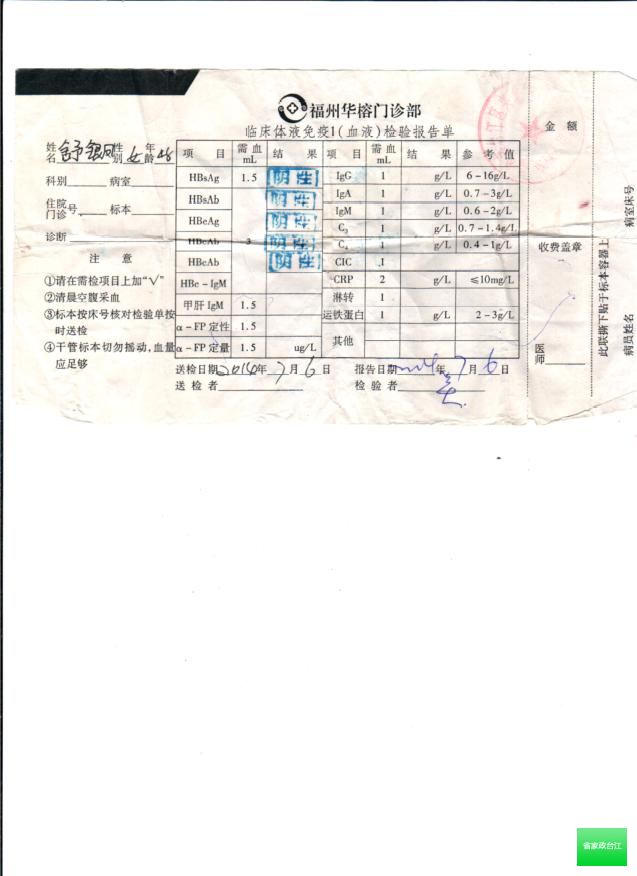 福州华榕门诊部
临床体液免疫1(血液)检验报告单
金 额
姓名 舒银 性别 女 年龄 48
科别 病室
住院门诊号 标本
诊断
注 意
①请在需检项目上加“√”
②清晨空腹采血
③标本按床号核对检验单按时送检
④干管标本切勿摇动,血量应足够
项 目 需血mL 结 果 项 目 需血mL 结 果 参 考 值
HBsAg 1.5 阴性 IgG 1 g/L 6-16g/L
HBsAb 阴性 IgA 1 g/L 0.7-3g/L
HBeAg 阴性 IgM 1 g/L 0.6-2g/L
C3 1 g/L 0.7-1.4g/L
HBeAb 3 阴性 C4 1 g/L 0.4-1g/L
HBcAb 阴性 CIC 1
HBc-IgM CRP 2 g/L ≤10mg/L
甲肝 IgM 1.5 淋转 1
α-FP 定性 1.5 运铁蛋白 1 g/L 2-3g/L
α-FP 定量 1.5 ug/L 其他
送检日期 2014年 7月 6日 报告日期 年 7月 6日
送检者 检验者
收费盖章
医师
此联撕下贴于标本容器上
病员姓名 病室床号
省家政台江